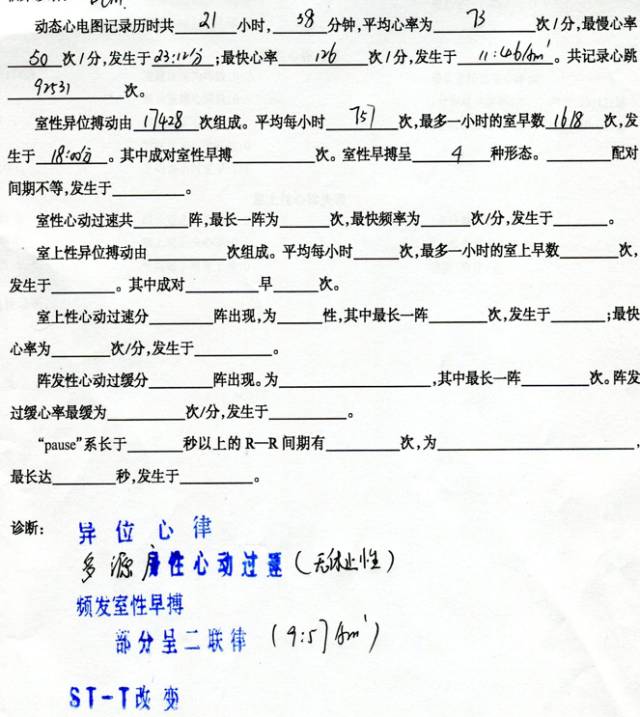 动态心电图记录历时共 21 小时, 38 分钟,平均心率为 73 次/分,最慢心率
50 次/分,发生于 23:12分;最快心率 126 次/分,发生于 11:46Am'。共记录心跳
92531 次。
室性异位搏动由 17428 次组成。平均每小时 757 次,最多一小时的室早数 1618 次,发
生于 18:00分。其中成对室性早搏______次。室性早搏呈 4 种形态。______配对
间期不等,发生于______。
室性心动过速共______阵,最长一阵为______次,最快频率为______次/分,发生于______。
室上性异位搏动由______次组成。平均每小时______次,最多一小时的室上早数______次,
发生于______。其中成对______早______次。
室上性心动过速分______阵出现,为______性,其中最长一阵______次,发生于______;最快
心率为______次/分,发生于______。
阵发性心动过缓分______阵出现。为______,其中最长一阵______次。阵发
过缓心率最缓为______次/分,发生于______。
“pause”系长于______秒以上的R—R间期有______次,为______,
最长达______秒,发生于______。
诊断: 异位心律
多源房性心动过速(无休止性)
频发室性早搏
部分呈二联律 (9:57Am')
ST-T改变